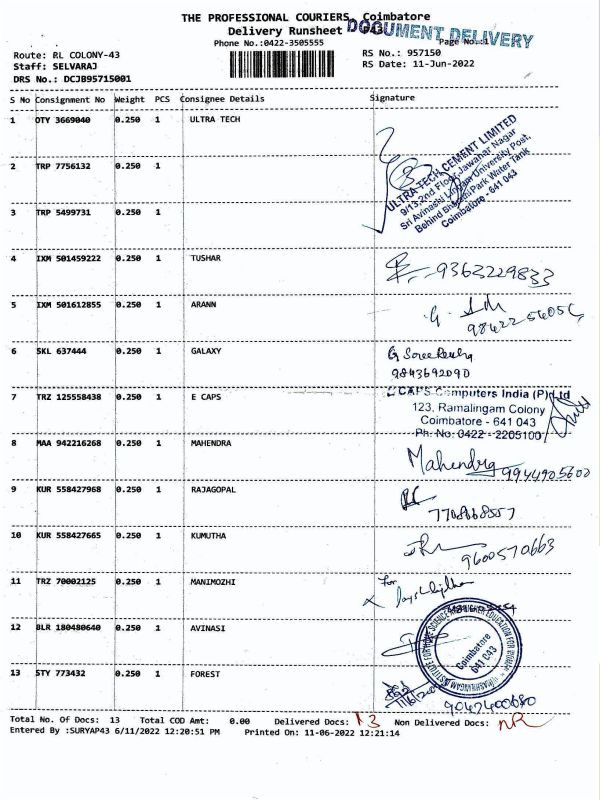 THE PROFESSIONAL COURIERS, Coimbatore
Delivery Runsheet
DOCUMENT DELIVERY
Phone No.:0422-3505555
Page No.:1
Route: RL COLONY-43
RS No.: 957150
Staff: SELVARAJ
RS Date: 11-Jun-2022
DRS No.: DCJB95715001
S No Consignment No Weight PCS Consignee Details Signature
1 OTY 3669040 0.250 1 ULTRA TECH
ULTRA TECH CEMENT LIMITED
9/13,2nd Floor, Jawahar Nagar
Sri Avinashi Lingam University Post,
Behind Bharathi Park Water Tank
Coimbatore - 641 043
2 TRP 7756132 0.250 1
3 TRP 5499731 0.250 1
4 IXM 501459222 0.250 1 TUSHAR
9363229833
5 IXM 501612855 0.250 1 ARANN
6 SKL 637444 0.250 1 GALAXY
9843692090
7 TRZ 125558438 0.250 1 E CAPS
CAPS Computers India (P) Ltd
123, Ramalingam Colony
Coimbatore - 641 043
Ph: No: 0422 - 2205100
8 MAA 942216268 0.250 1 MAHENDRA
Mahendra 9944905600
9 KUR 558427968 0.250 1 RAJAGOPAL
10 KUR 558427665 0.250 1 KUMUTHA
9600570663
11 TRZ 70002125 0.250 1 MANIMOZHI
For
12 BLR 180480640 0.250 1 AVINASI
Coimbatore
641 043
13 STY 773432 0.250 1 FOREST
9047400680
Total No. Of Docs: 13 Total COD Amt: 0.00 Delivered Docs: 13 Non Delivered Docs: NR
Entered By :SURYAP43 6/11/2022 12:20:51 PM Printed On: 11-06-2022 12:21:14